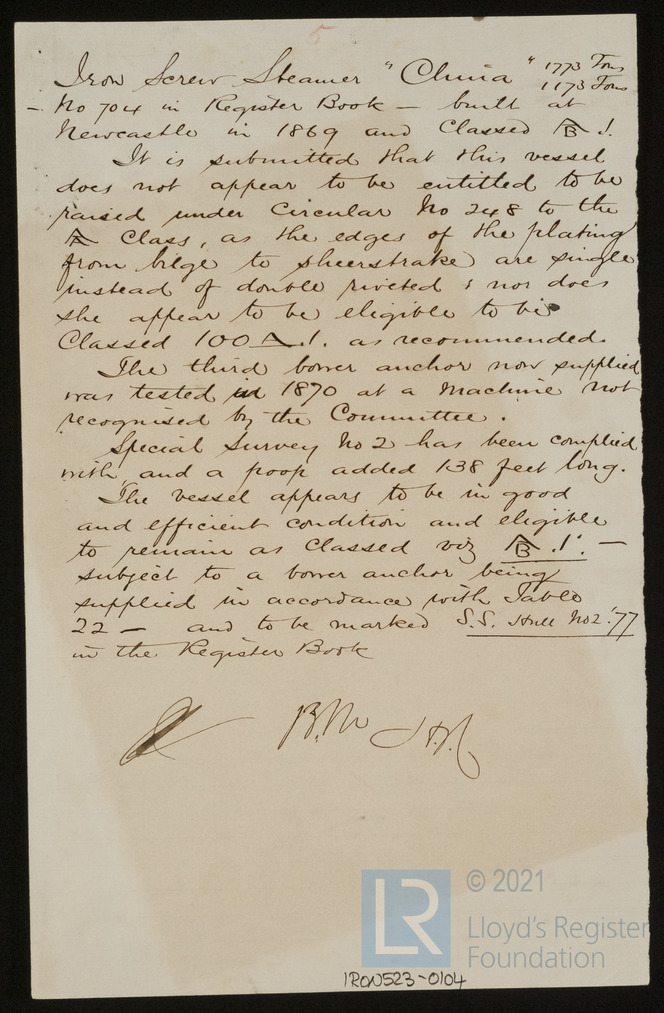 5
Iron Screw Steamer "China" 1773 Tons
1173 Tons
- No 704 in Register Book - built at
Newcastle in 1869 and Classed B 1.
It is submitted that this vessel
does not appear to be entitled to be
raised under Circular No 248 to the
A Class, as the edges of the plating
from bilge to sheerstrake are single
instead of double riveted & nor does
she appear to be eligible to be
Classed 100 A.1. as recommended.
The third bower anchor now supplied
was tested in 1870 at a Machine not
recognised by the Committee.
Special Survey No 2 has been complied
with and a poop added 138 feet long.
The vessel appears to be in good
and efficient condition and eligible
to remain as Classed viz B .1. -
subject to a bower anchor being
supplied in accordance with Table
22 - and to be marked S.S. Hull No2.'77
in the Register Book
B.M
LR © 2021
Lloyd's Register
Foundation
IRON523-0104